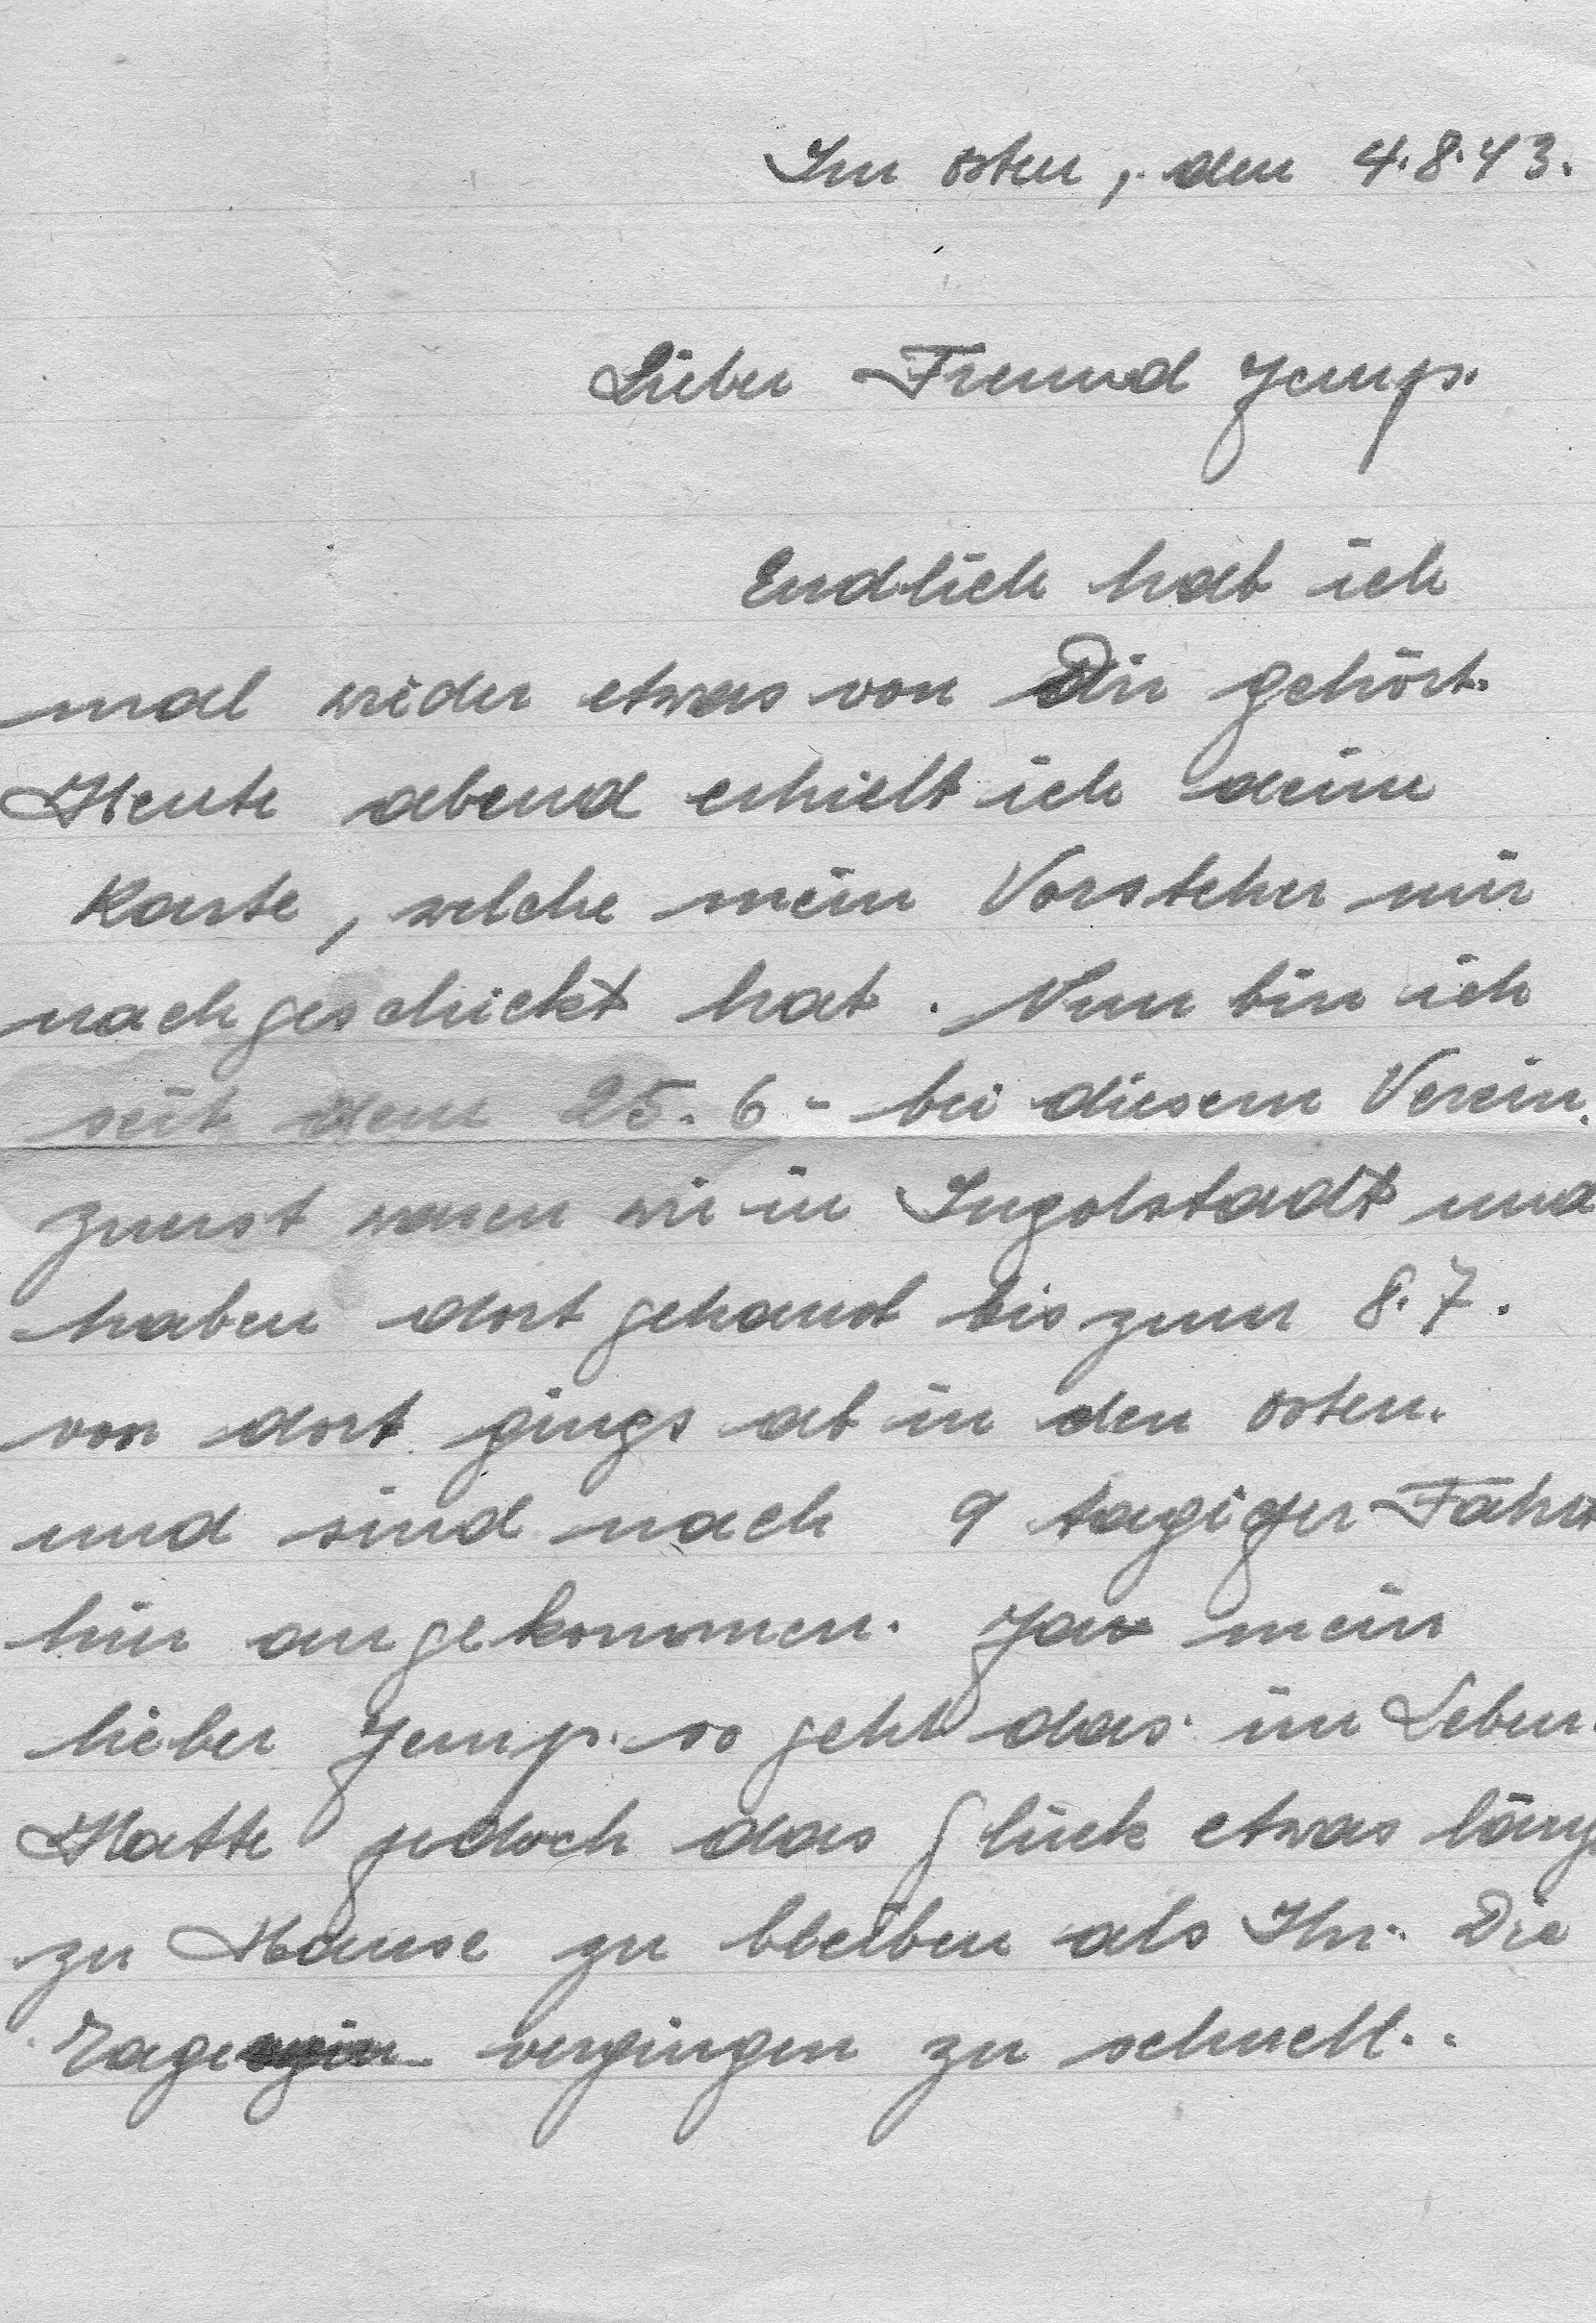 Im osten, den 4.8.43.
Lieber Freund Jemp.
Endlich hab ich
mal wider etwas von Dir gehört.
Heute abend erhielt ich deine
Karte, welche mein Vorsteher mir
nachgeschickt hat. Nun bin ich
seit dem 25.6- bei diesem Verein.
zuerst waren wir in Ingolstadt und
haben dort gehaust bis zum 8.7.
von dort gings ab in den osten.
und sind nach 9 tagiger Fahrt
hier angekommen. Ja mein
lieber Jemp. so geht das im Leben
Hatte jedoch das Glück etwas läng
zu Hause zu bleiben als Ihr. Die
Tage vergingen zu schnell..